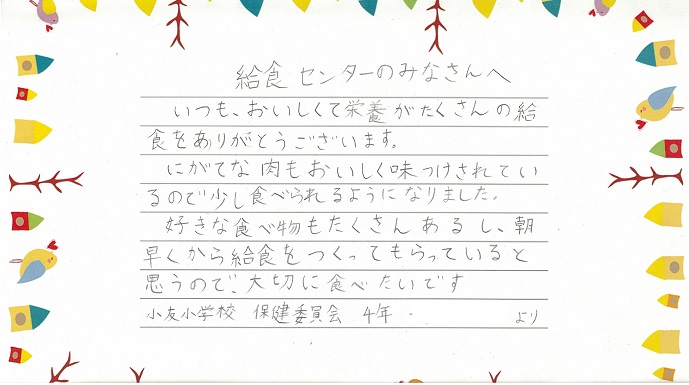 給食センターのみなさんへ
いつも、おいしくて栄養がたくさんの給
食をありがとうございます。
にがてな肉もおいしく味つけされてい
るので少し食べられるようになりました。
好きな食べ物もたくさんあるし、朝
早くから給食をつくってもらっていると
思うので、大切に食べたいです
小友小学校 保健委員会 4年 より